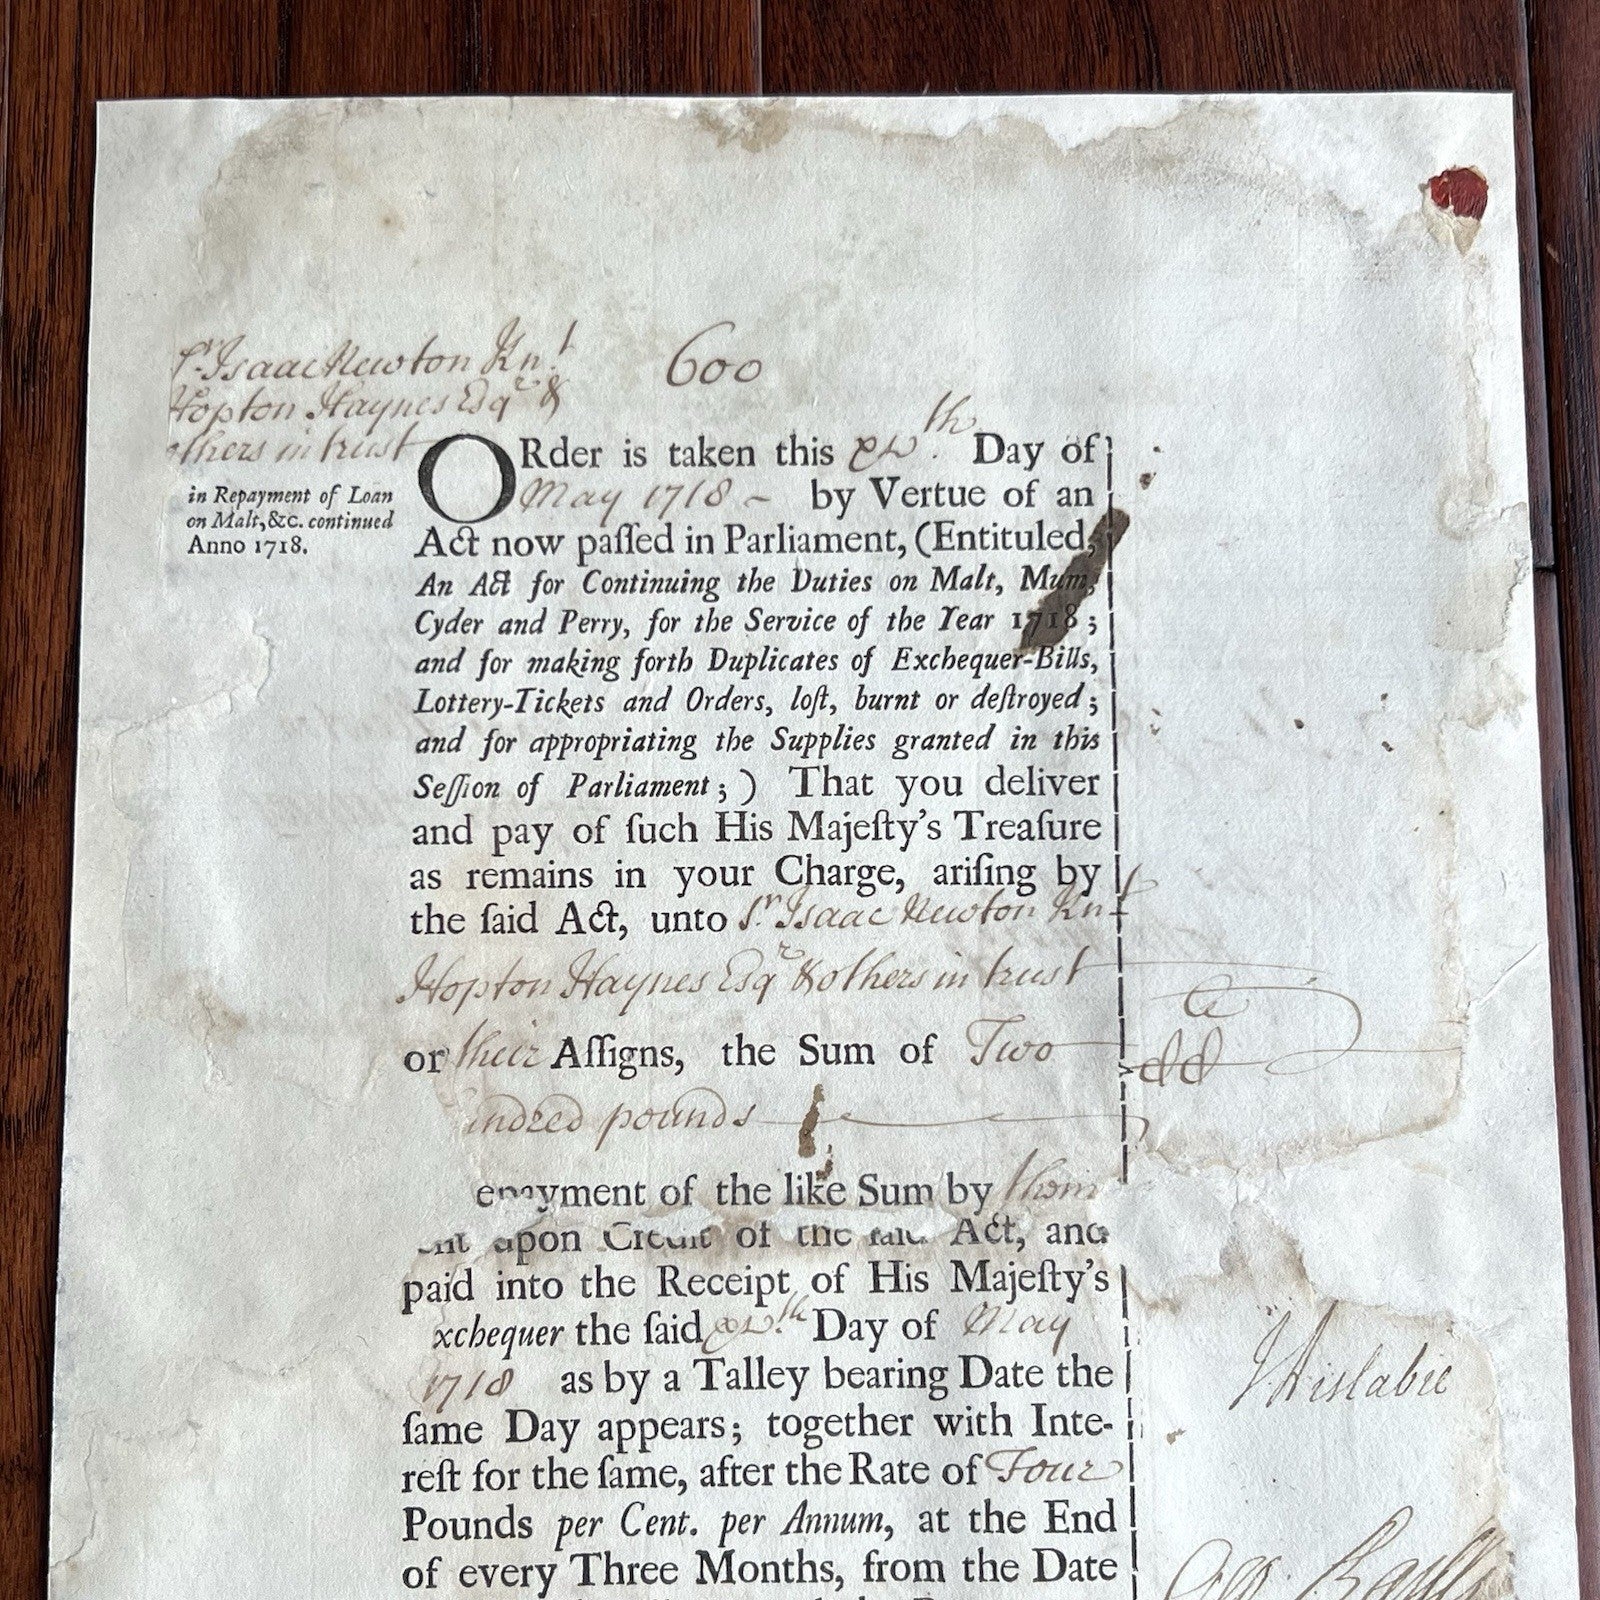 Sr. Isaac Newton Knt.
Hopton Haynes Esqr &
others in trust
600
in Repayment of Loan
on Malt, &c. continued
Anno 1718.
ORder is taken this th Day of
May 1718 - by Vertue of an
Act now paſſed in Parliament, (Entituled,
An Act for Continuing the Duties on Malt, Mum,
Cyder and Perry, for the Service of the Year 1718;
and for making forth Duplicates of Exchequer-Bills,
Lottery-Tickets and Orders, loſt, burnt or deſtroyed;
and for appropriating the Supplies granted in this
Seſſion of Parliament;) That you deliver
and pay of ſuch His Majeſty's Treaſure
as remains in your Charge, ariſing by
the ſaid Act, unto Sr. Isaac Newton Knt
Hopton Haynes Esqr & others in trust
or their Aſſigns, the Sum of Two
undred pounds
epayment of the like Sum by them
ent upon Credit of the ſaid Act, and
paid into the Receipt of His Majeſty's
xchequer the ſaid th Day of May
1718 as by a Talley bearing Date the
ſame Day appears; together with Inte-
reſt for the ſame, after the Rate of Four
Pounds per Cent. per Annum, at the End
of every Three Months, from the Date
J Aislabie
Geo. Baill